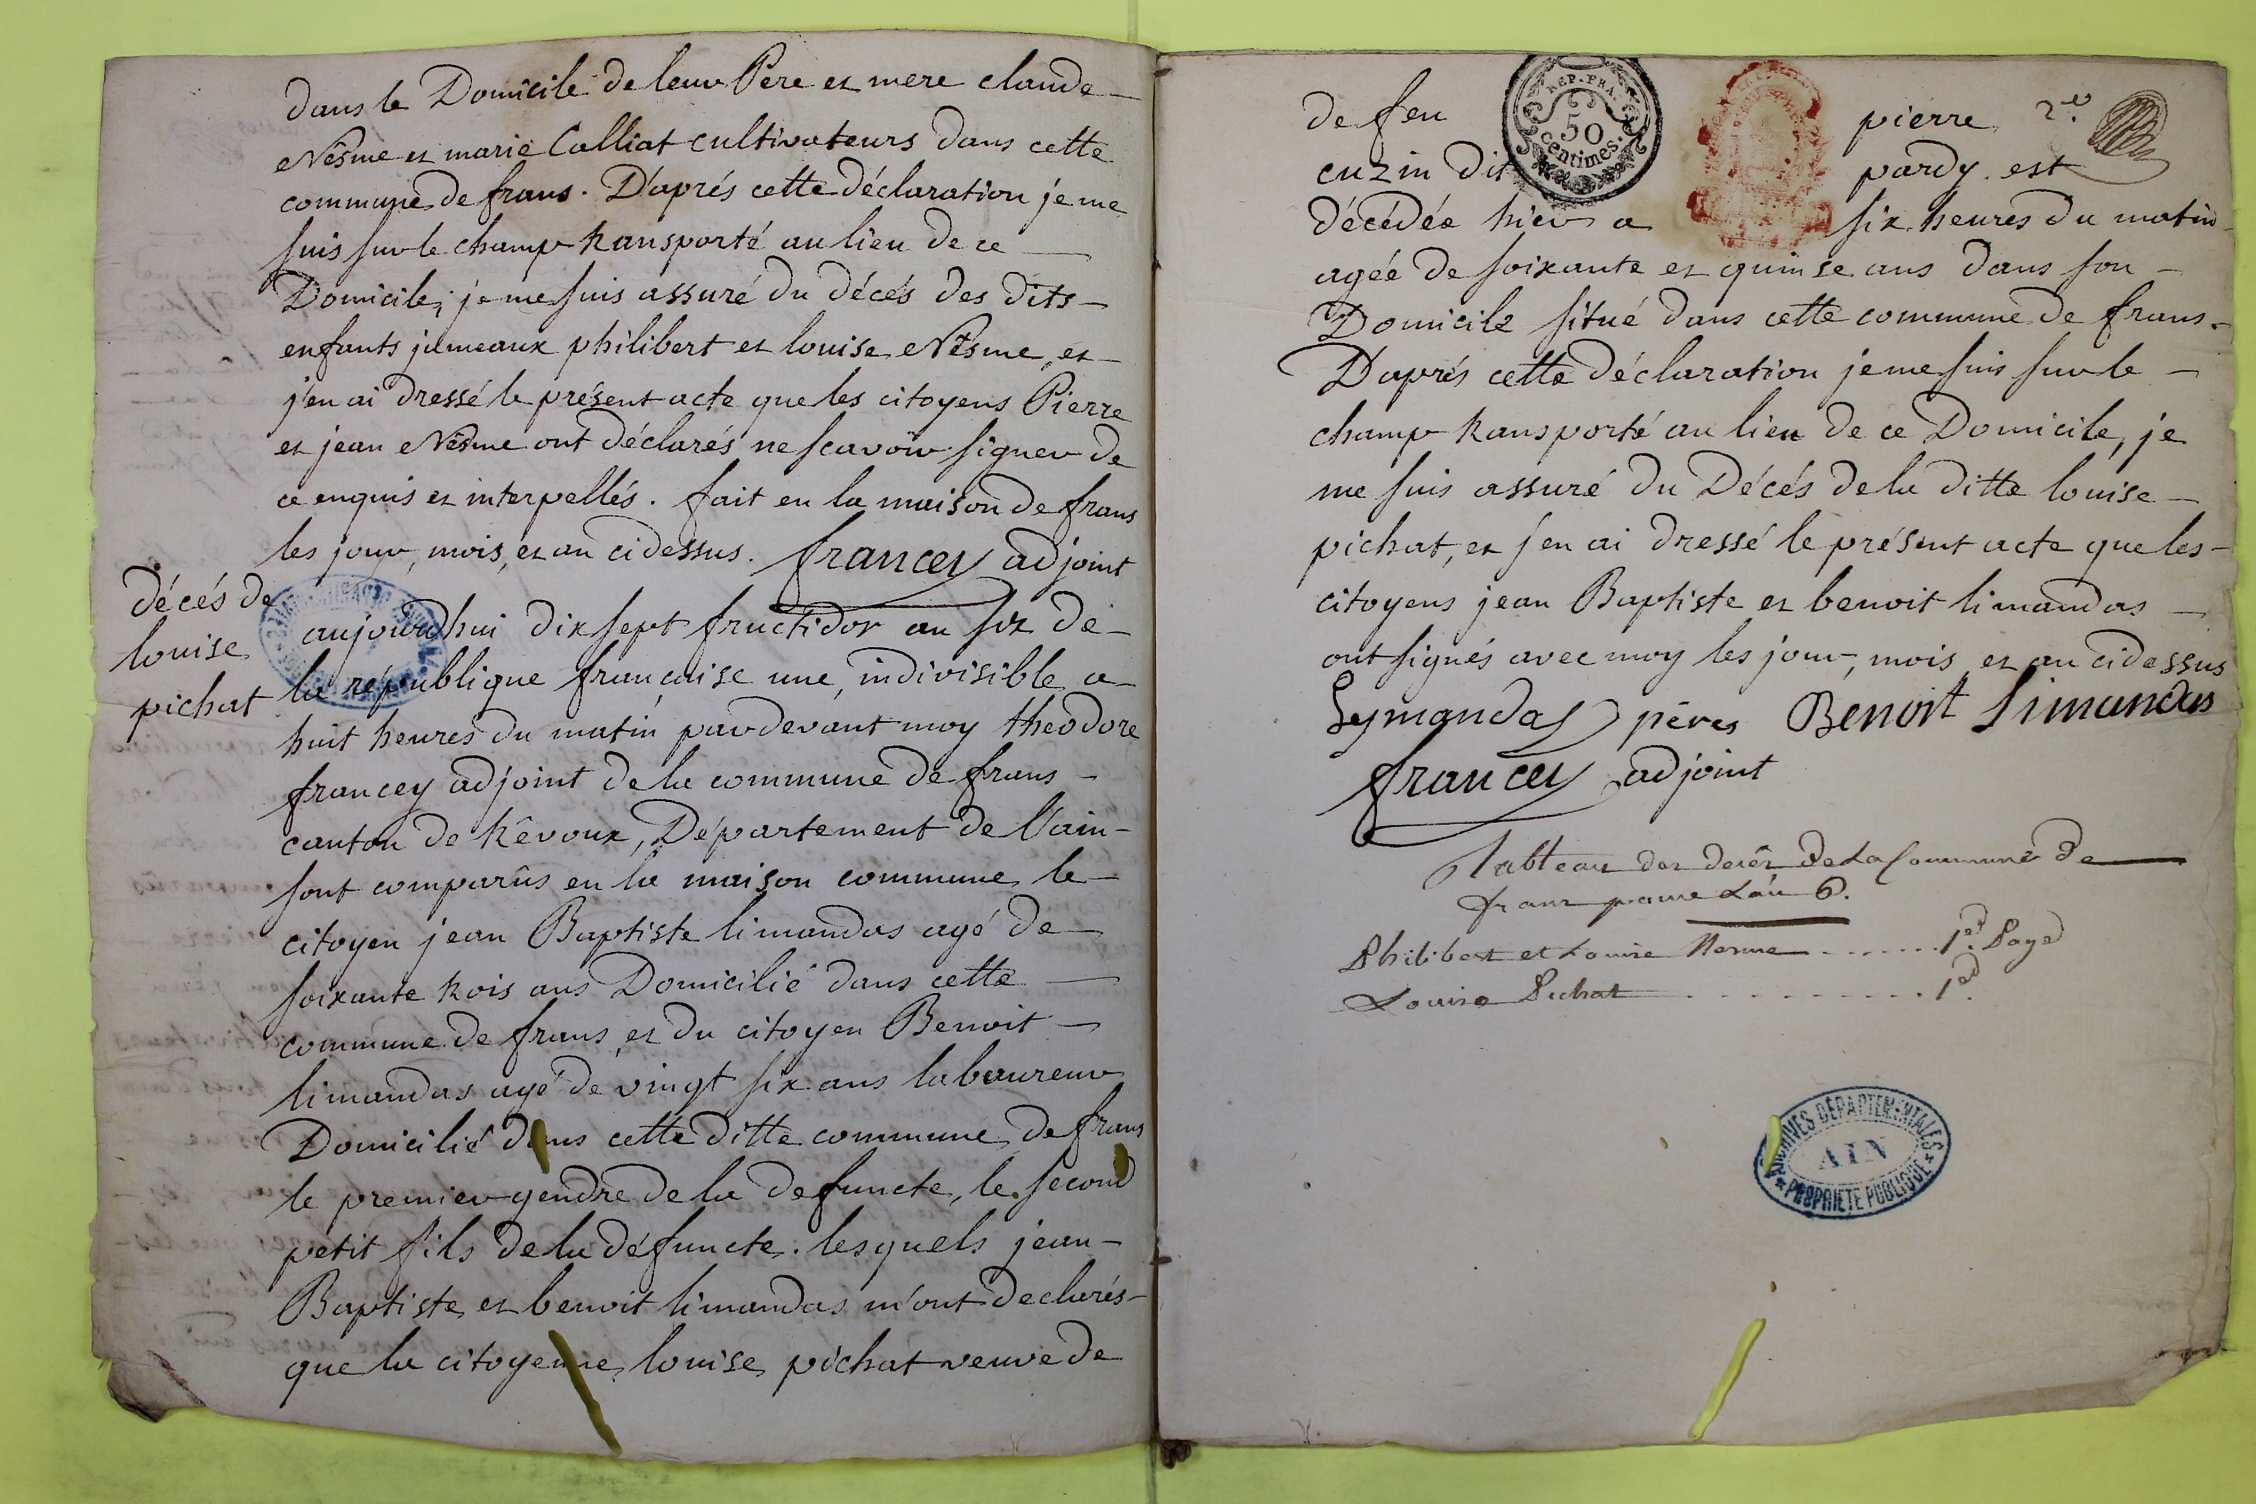 dans le Domicile de leur Pere et mere claude
Nêsme et marie Calliat cultivateurs dans cette
commune de frans. D'aprés cette déclaration je me
suis sur le champ transporté au lieu de ce
Domicile, je me suis assuré du décés des dits
enfants jumeaux philibert et louise Nêsme, et
j'en ai dressé le présent acte que les citoyens Pierre
et jean Nêsme ont déclarés ne scavoir signer de
ce enquis et interpellés. fait en la maison de frans
les jour, mois, et an cidessus. francey adjoint
décés de
louise
pichat
aujourdhui dix sept fructidor an six de
la république française une, indivisible a
huit heures du matin pardevant moy théodore
francey adjoint de la commune de frans
canton de trêvoux, Département de l'ain
sont comparûs en la maison commune le
citoyen jean Baptiste limandas agé de
soixante trois ans Domicilié dans cette
commune de frans, et du citoyen Benoit
limandas agé de vingt six ans laboureur
Domicilié dans cette ditte commune de frans
le premier gendre de la defuncte, le second
petit fils de la défuncte. lesquels jean
Baptiste et benoit limandas m'ont declarés
que la citoyenne louise pichat veuve de
de feu pierre 2.e
REP. FRA.
50
centimes.
cuzin dit pardy est
décédée hier a six heures du matin
agée de soixante et quinse ans dans son
Domicile situé dans cette commune de frans.
D'aprés cette déclaration je me suis sur le
champ transporté au lieu de ce Domicile, je
me suis assuré du Décés de la ditte louise
pichat, et j'en ai dressé le présent acte que les
citoyens jean Baptiste et benoit limandas
ont signés avec moy les jour, mois et an cidessus
Lymandas péres Benoit Limandas
francey adjoint
Tableau des decês de La Commune de
frans pour L'an 6.
Philibert et Louise Nesme ...... 1.er Page
Louise Pichat .......... 1.er
ARCHIVES DÉPARTEMENTALES
AIN
PROPRIÉTÉ PUBLIQUE